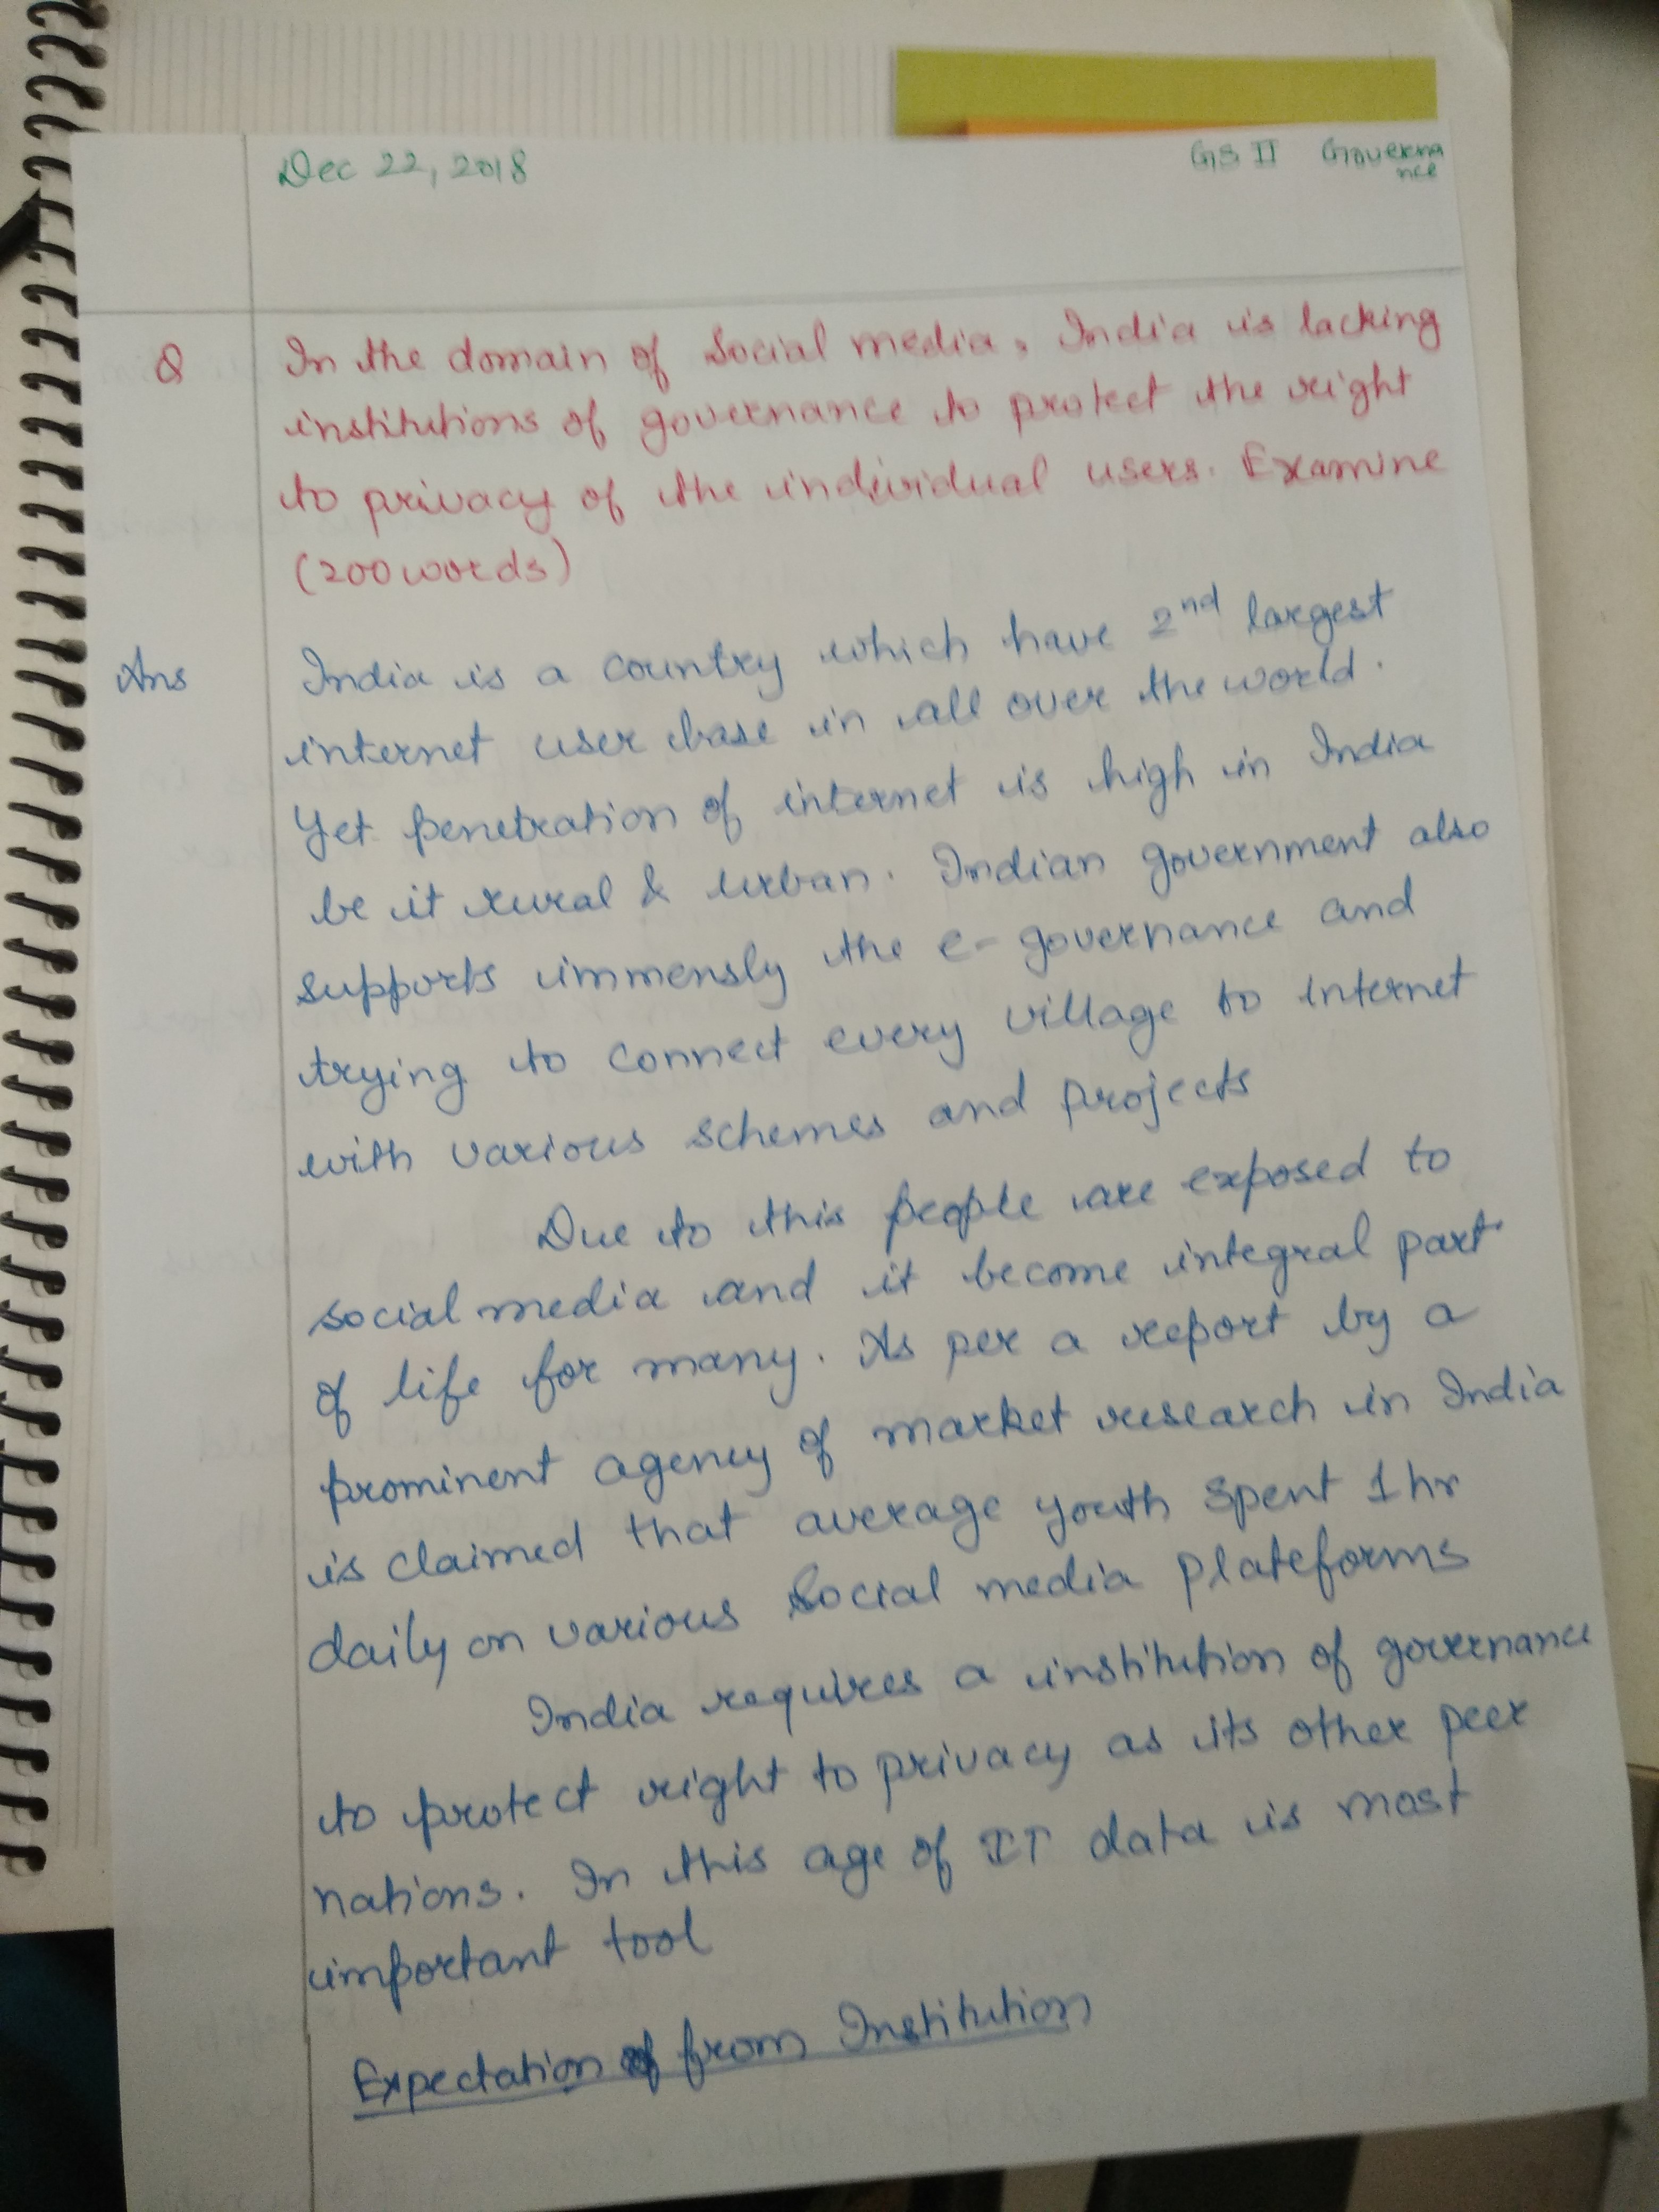 Dec 22, 2018
GS II Governa
nce
Q In the domain of Social media, India is lacking
institutions of governance to protect the right
to privacy of the individual users. Examine
(200 words)
Ans India is a country which have 2nd largest
internet user base in all over the world.
Yet penetration of internet is high in India
be it rural & urban. Indian government also
supports immensly the e-governance and
trying to connect every village to internet
with various schemes and projects
Due to this people are exposed to
social media and it become integral part
of life for many. As per a report by a
prominent agency of market research in India
is claimed that average youth spent 1 hr
daily on various Social media plateforms
India requires a institution of governance
to protect right to privacy as its other peer
nations. In this age of IT data is most
important tool
Expectation from Institution